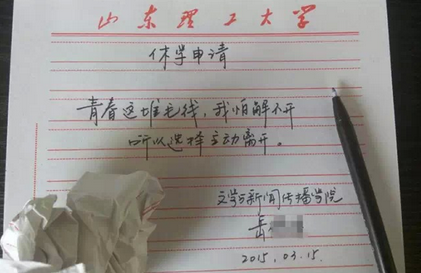 山东理工大学
休学申请
青春这堆毛线，我怕解不开
所以选择主动离开。
文学与新闻传播学院
岳
2015.03.15.